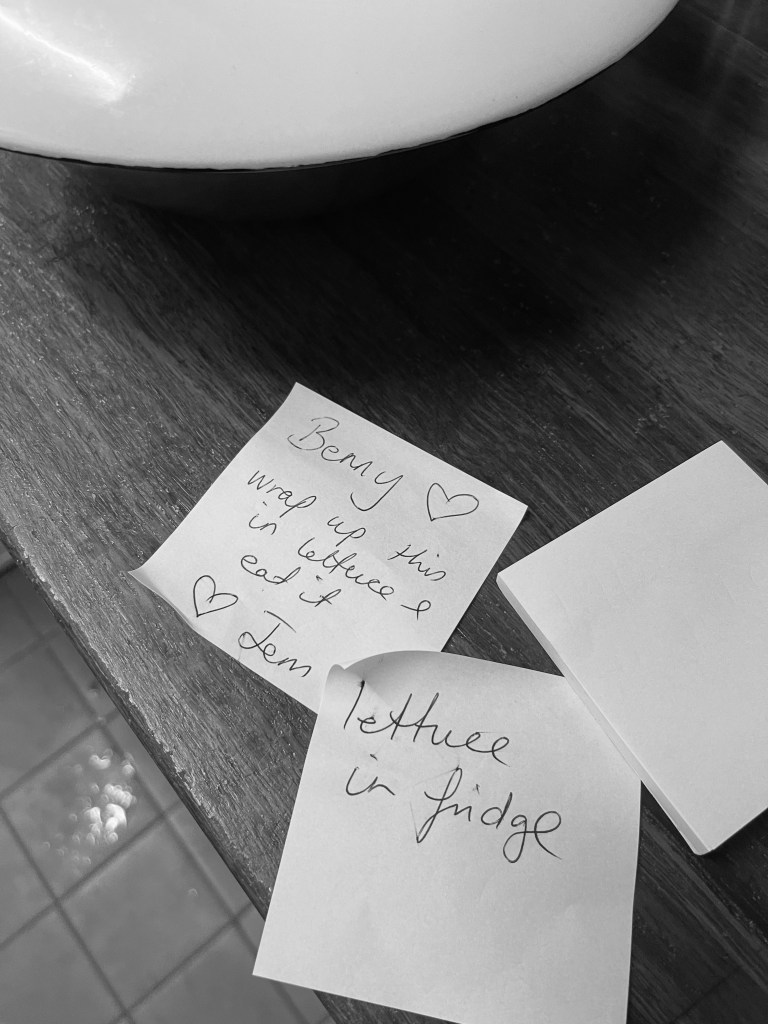 Benny ♡
wrap up this
in lettuce &
eat it
♡ Jem
lettuce
in fridge